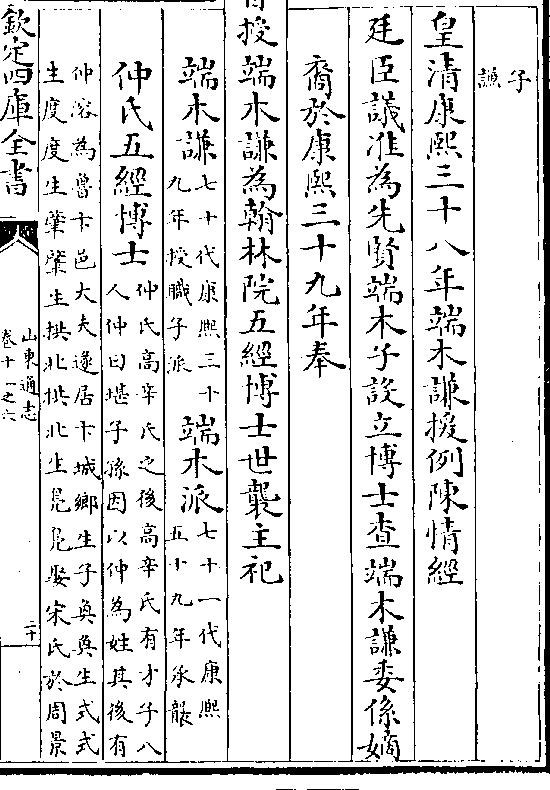 子
謙
皇清康熙三十八年端木謙援例陳情經
廷臣議准為先賢端木子設立博士查端木謙委係嫡
裔於康熙三十九年奉
授端木謙為翰林院五經博士世襲主祀
端木謙七十代康熙三十
九年授職子派
端木派七十一代康熙
五十九年承襲
仲氏五經博士仲氏高辛氏之後高辛氏有才子八
人仲曰堪子孫因以仲為姓其後有
仲溶為魯卞邑大夫遂居卞城鄉生子奐奐生式式
生度度生肇肇生拱北拱北生凫凫娶宋氏於周景
欽定四庫全書
山東通志
卷十一之六
二十